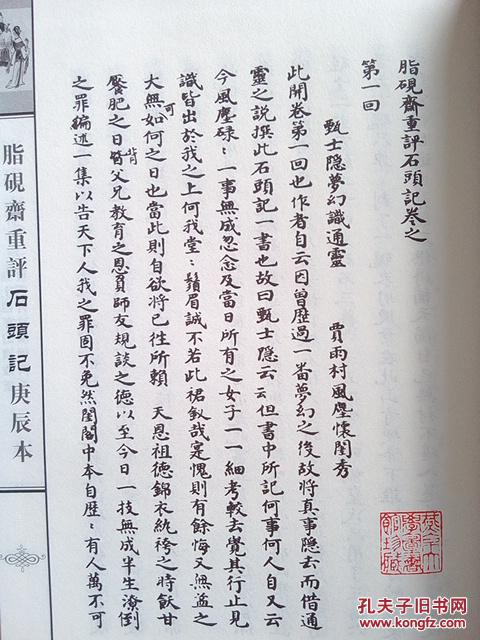 脂硯齋重評石頭記卷之
第一回
甄士隐夢幻識通靈 賈雨村風塵懷閨秀
此開卷第一回也作者自云因曾歷過一番夢幻之後故將真事隐去而借通
靈之說撰此石頭記一書也故曰甄士隐云云但書中所記何事何人自又云
今風塵碌〻一事無成忽念及當日所有之女子一一細考較去覺其行止見
識皆出於我之上何我堂〻鬚眉誠不若此裙釵哉寔愧則有餘悔又無益之
大無可如何之日也當此則自欲將已往所賴 天恩祖德錦衣紈袴之時飫甘
饜肥之日皆背父兄教育之恩負師友規談之德以至今日一技無成半生潦倒
之罪編述一集以告天下人我之罪固不免然閨閣中本自歷〻有人萬不可
脂硯齋重評石頭記庚辰本
孔夫子旧书网